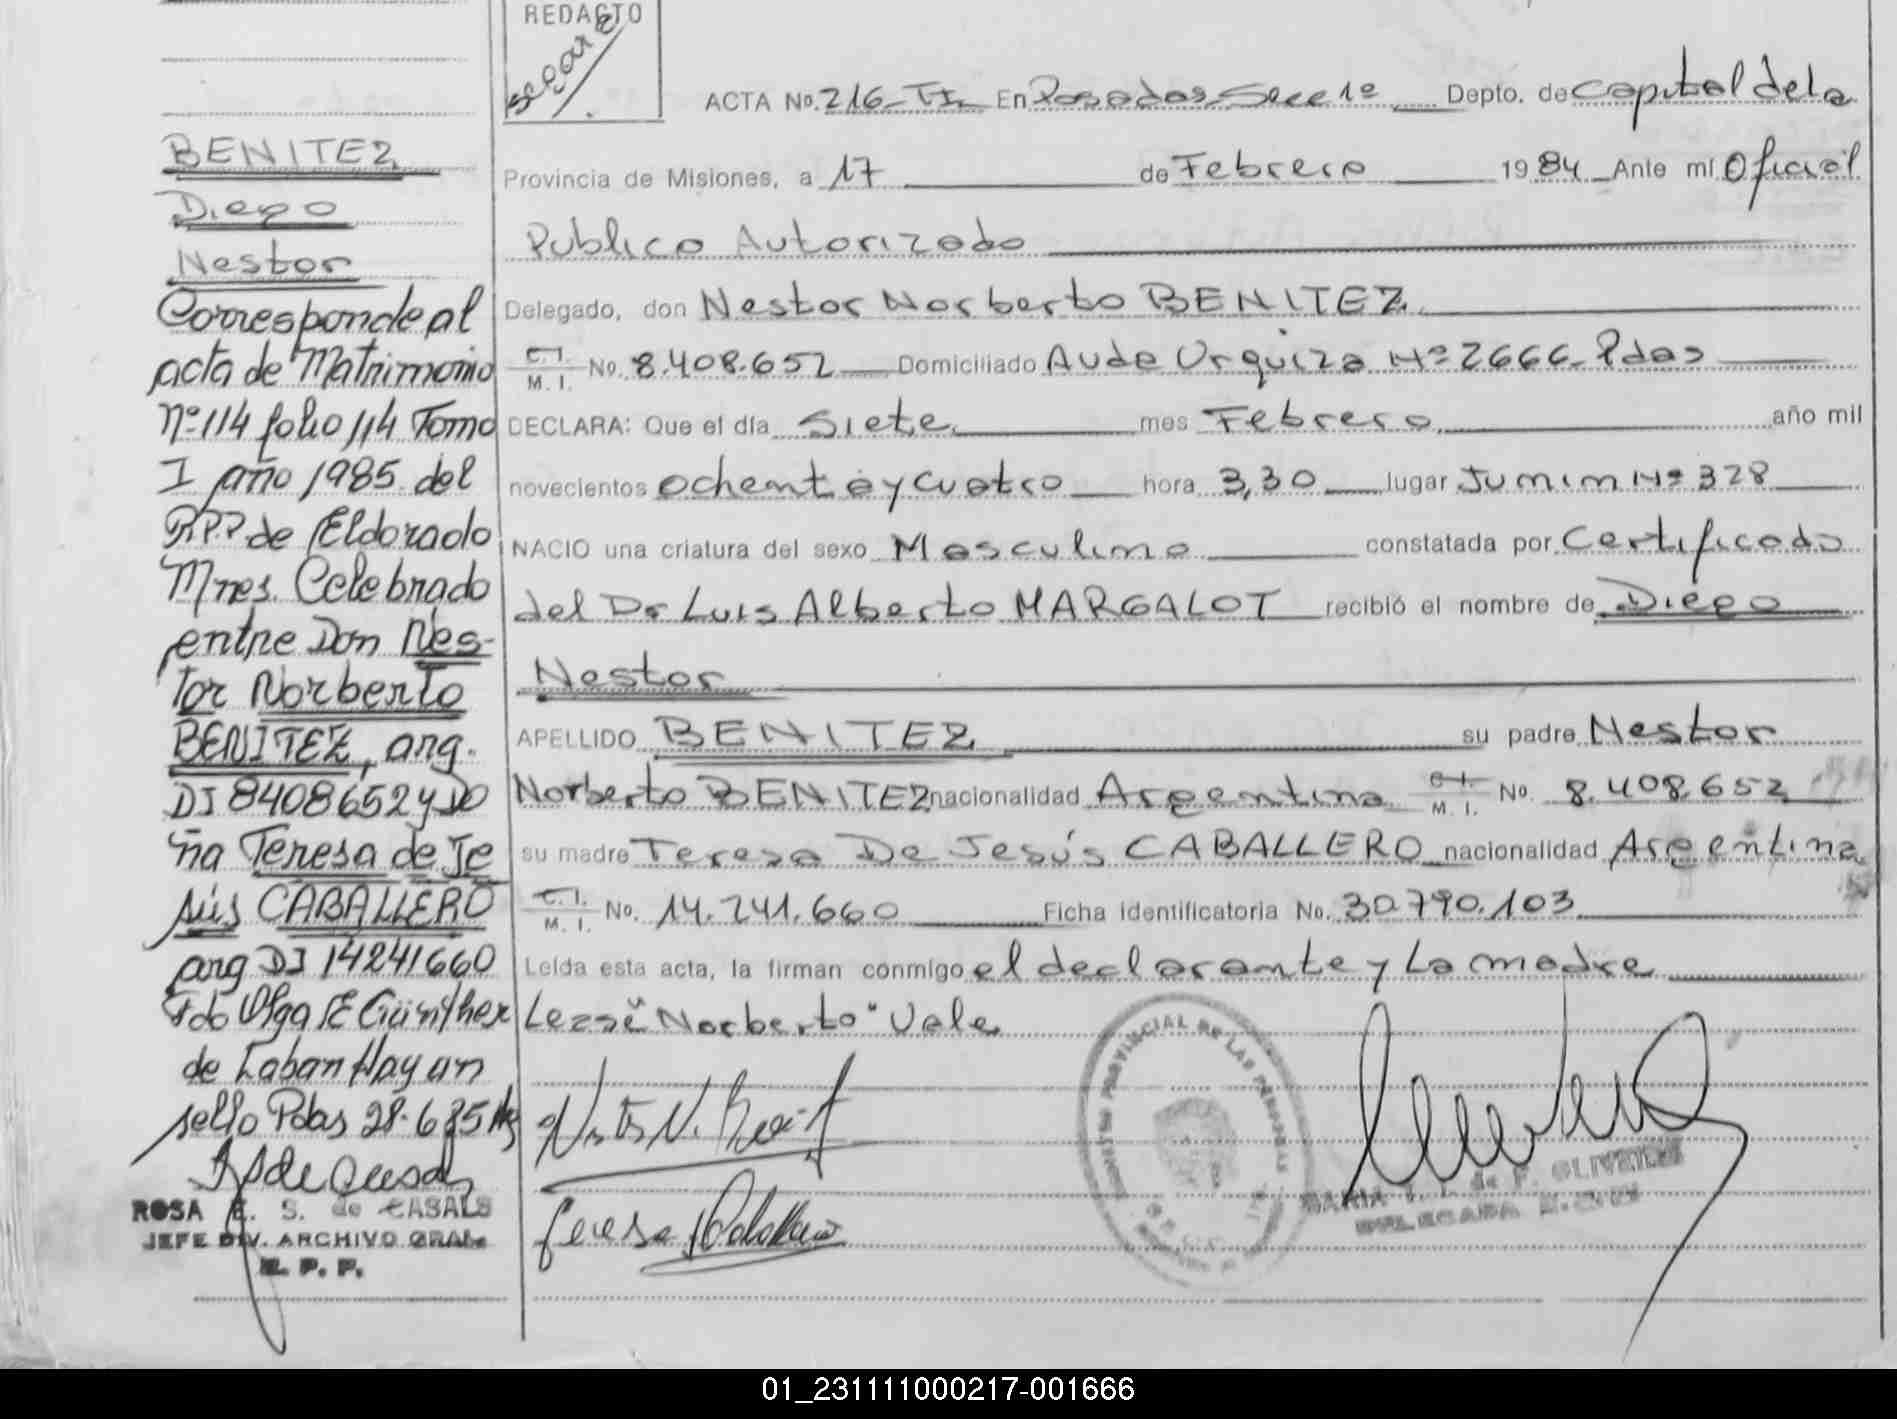 REDACTO
ACTA No. 216-TI- En Posadas Secc 1º Depto. de Capital de la
Provincia de Misiones, a 17 de Febrero 1984 Ante mí Oficial
Publico Autorizado
Delegado, don Nestor Norberto BENITEZ
C.I. M.I. No. 8.408.652 Domiciliado Avda Urquiza Nº 2666 Pdas
DECLARA: Que el día Siete mes Febrero año mil
novecientos ochenta y cuatro hora 3,30 lugar Junin Nº 328
NACIO una criatura del sexo Masculino constatada por Certificado
del Dr Luis Alberto MARGALOT recibió el nombre de Diego
Nestor
APELLIDO BENITEZ su padre Nestor
Norberto BENITEZ nacionalidad Argentina C.I. M.I. No. 8.408.652
su madre Teresa De Jesús CABALLERO nacionalidad Argentina
C.I. M.I. No. 14.241.660 Ficha identificatoria No. 30.790.103
Leída esta acta, la firman conmigo el declarante y La madre
Lease "Norberto" Vale
BENITEZ
Diego
Nestor
Corresponde al
acta de Matrimonio
Nº 114 folio 114 Tomo
I año 1985 del
R.P.P de Eldorado
Mnes. Celebrado
entre Don Nes-
tor Norberto
BENITEZ, arg.
DI 8408652 y Do
ña Teresa de Je
sús CABALLERO
arg DI 14241660
Fdo Olga E Günther
de Laban Hay un
sello Pdas 28-6-85
ROSA E. S. de CASALS
JEFE DIV. ARCHIVO GRAL.
R. P. P.
REGISTRO PROVINCIAL DE LAS PERSONAS
MARIA de F. OLIVEIRA
DELEGADA
01_231111000217-001666